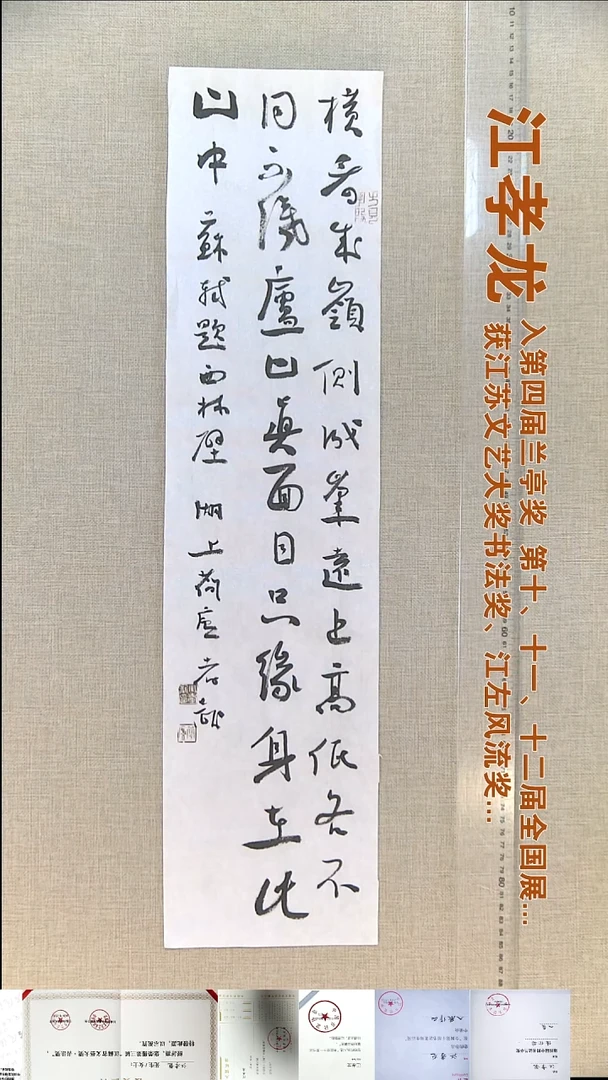 江孝龙
入第四届兰亭奖 第十、十一、十二届全国展...
获江苏文艺大奖书法奖、江左风流奖...
横看成嶺側成峯遠上高低各不
同不識廬山真面目只緣身在此
山中 蘇軾題西林壁 湖上荷廬 孝龍